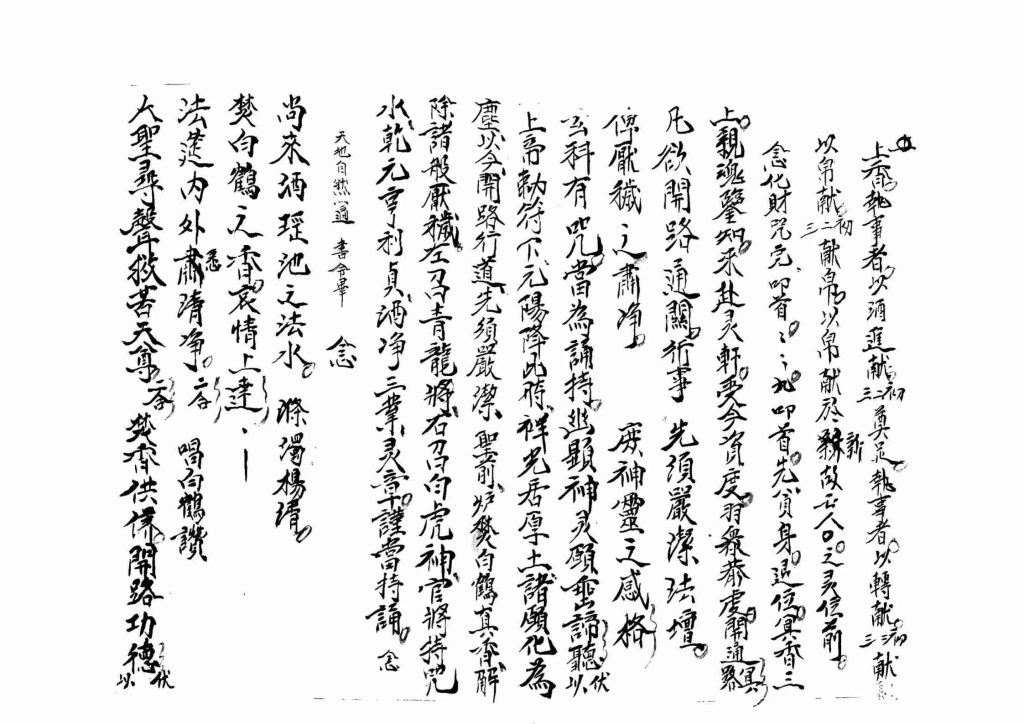 上香執事者以酒進献初二三奠足執事者以轉献初二三献
以帛献初二三献帛以帛献於新故亡人〇之灵位前
念化財咒完叩首〻〻九叩首先食身退位具香三
上親魂鑒知來赴灵軒受今資度羽衆恭虔開通路
凡欲開路通關行事 先須嚴潔法壇
俾厭穢之肅净 庶神靈之感格
玄科有咒當為誦持幽顯神灵願垂諦聽伏以
上帝勅符下元陽降此時祥光居厚土諸願化為
塵以今開路行道先須嚴潔聖前炉焚白鶴真香解
除諸般厭穢左召青龍將右召白虎神官將持咒
水乾元亨利貞洒净三業灵章謹當持誦 念
天地自然 遍 書令畢 念
尚來洒瑶池之法水 滌濁楊清
焚白鶴之香哀情上達
法筵内外悉肅清净 二合 唱白鶴讚
大聖尋聲救苦天尊 二合 焚香供養開路功德伏以